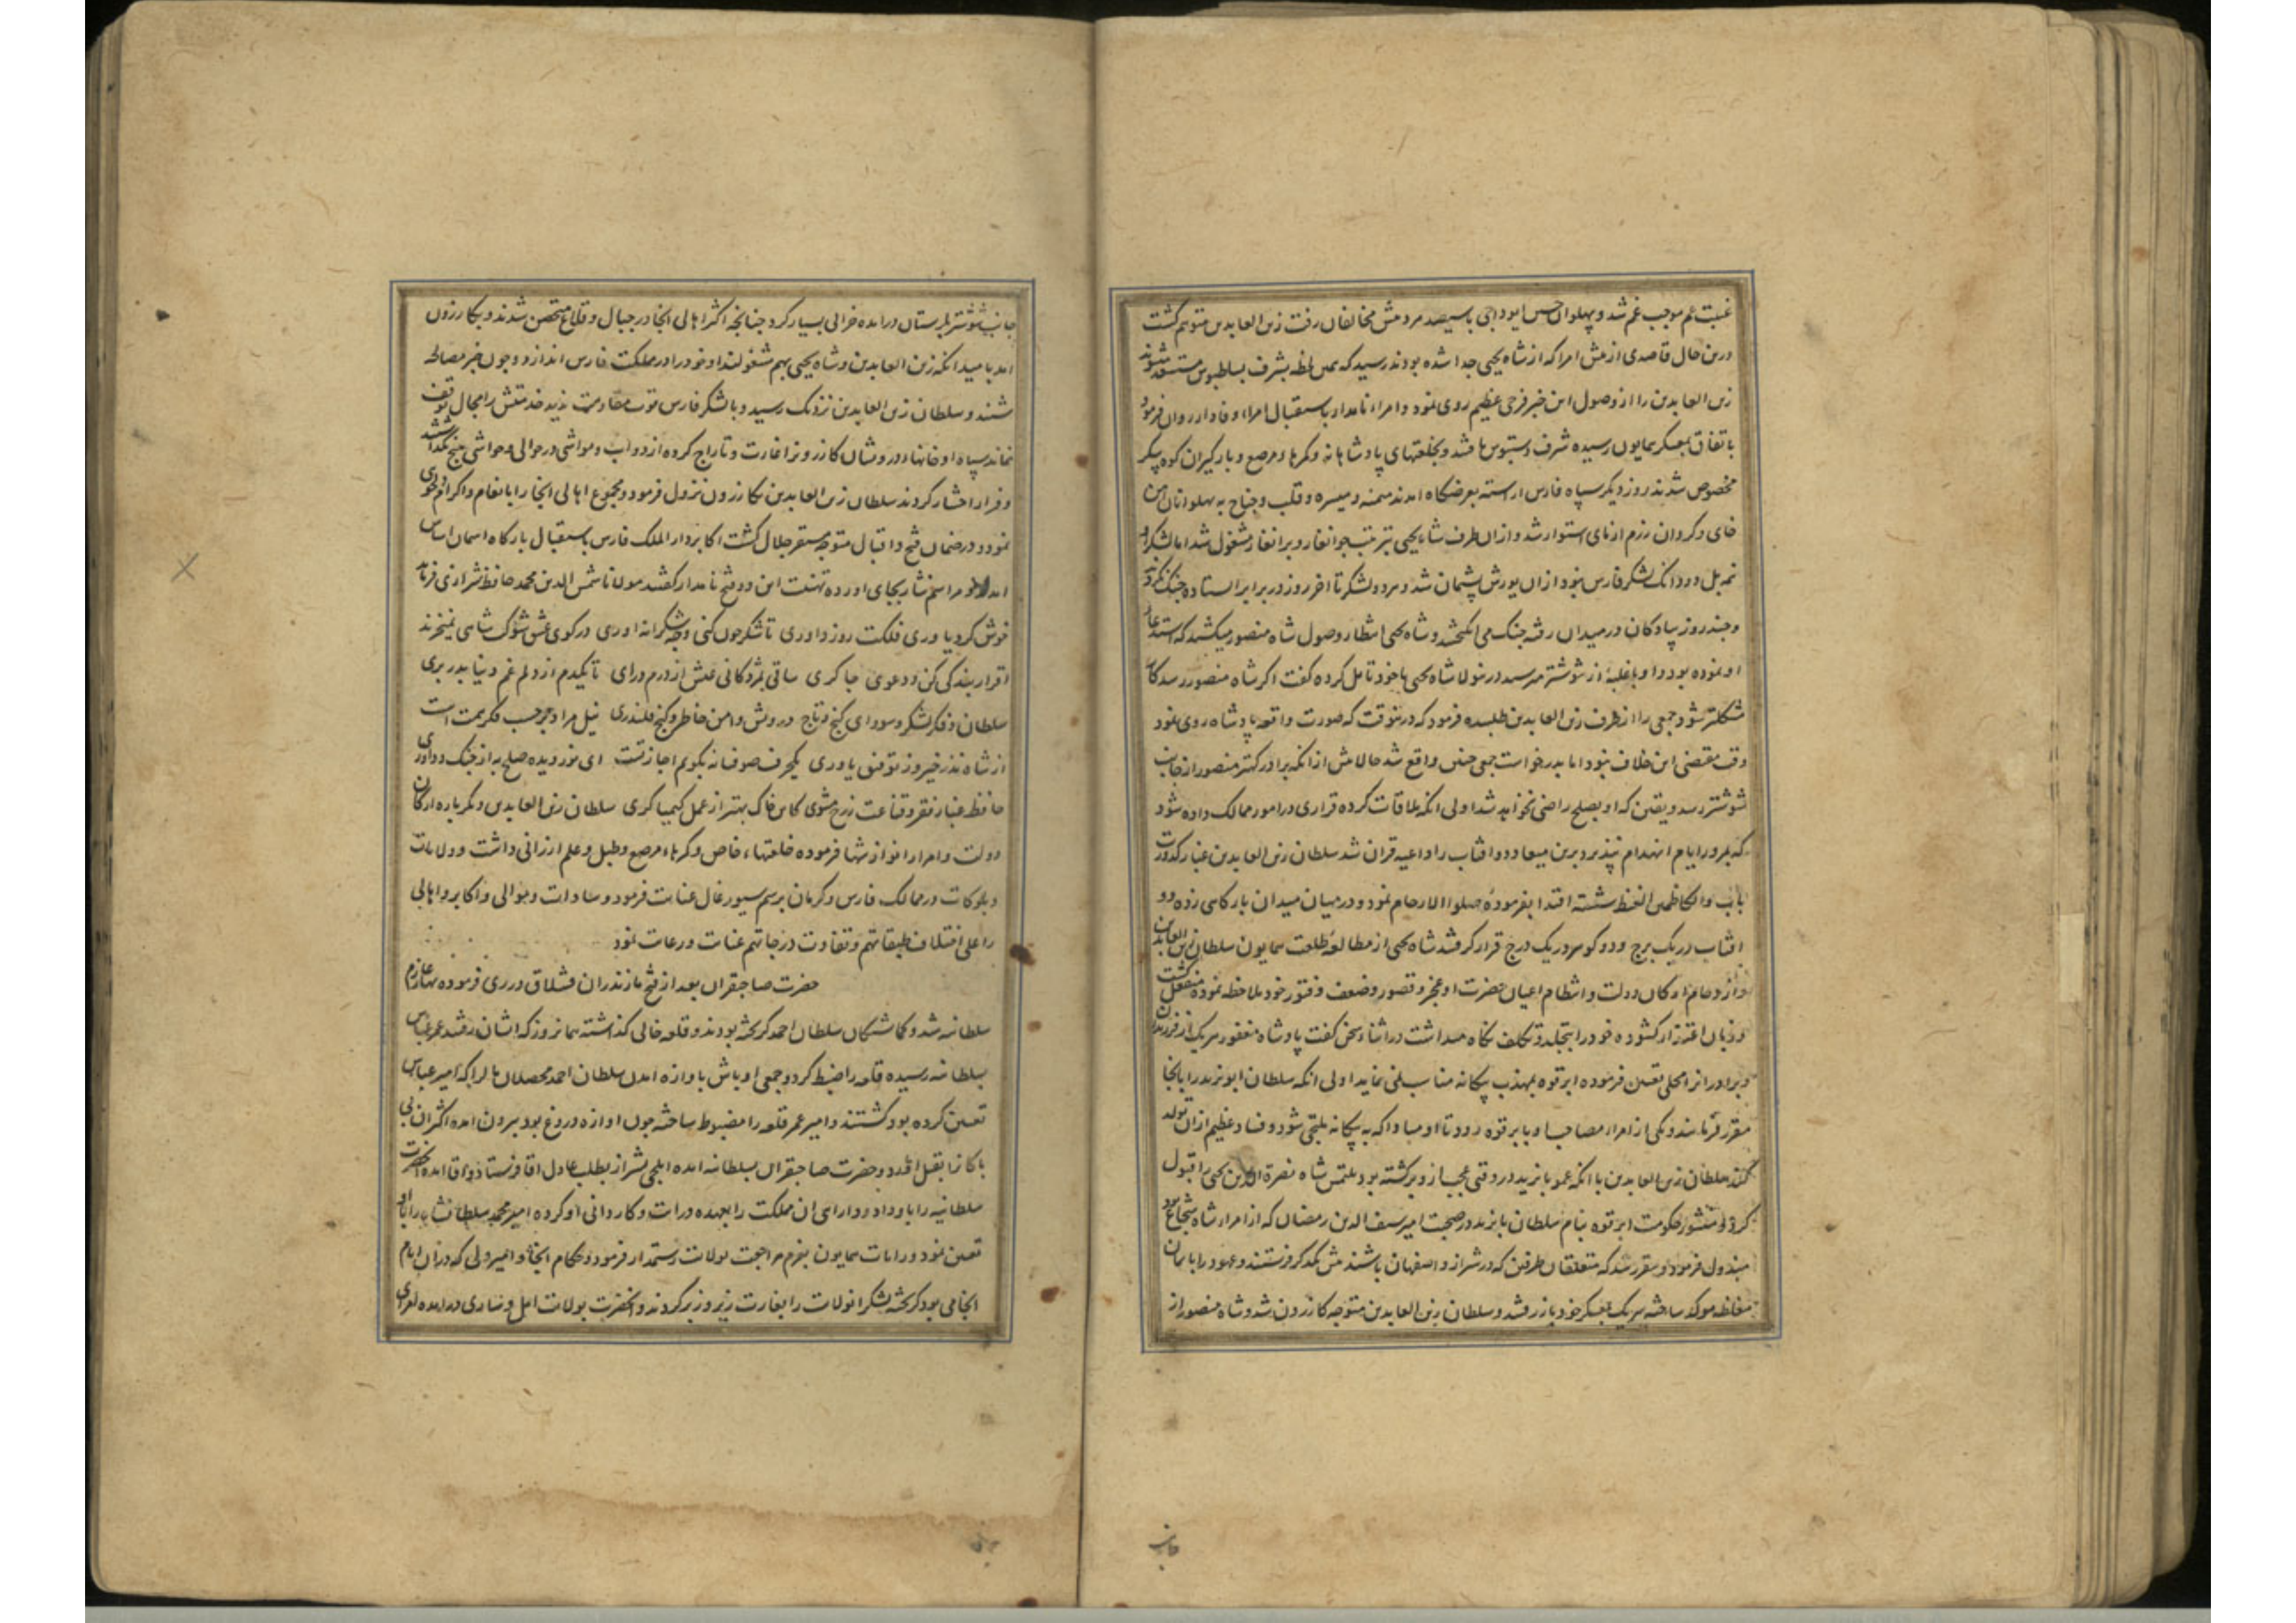 غیبت عم موجب غم شد و پهلوان حسن ایوداجی با سیصد مرد پیش مخالفان رفت زین العابدین متوهم گشت
درین حال قاصدی از پیش امرا که از شاه یحیی جدا شده بودند رسید که همین لحظه بشرف بساطبوس مستسعد میشوند
زین العابدین را از وصول این خبر فرحی عظیم روی نمود و امراء نامدار باستقبال امراء وفادار روان فرمود
باتفاق بمعسکر همایون رسیده شرف دستبوس یافتند و بخلعتهای پادشاهانه و کمرهاء مرصع و بارگیران کوه پیکر
مخصوص شدند روز دیگر سپاه فارس اراسته بعرضگاه امدند میمنه و میسره و قلب و جناح به پهلوانان اهن
خای و گردان رزم ازمای استوار شد و ازان طرف شاه یحیی بترتیب جوانغار و برانغار مشغول شد اما لشکر او
نمد لشکر فارس نبود ازان یورش پشیمان شد و هر دو لشکر تا اخر روز در برابر ایستاده جنگ نکردند
و چند روز پیادگان در میدان رفته جنگ می انگیختند و شاه یحیی انتظار وصول شاه منصور میکشید که استدعاء
او نموده بود و او با غلبهٔ از شوشتر میرسید درینولا شاه یحیی با خود تامل کرده گفت اگر شاه منصور رسد کار
مشکلتر شود جمعی را از طرف زین العابدین طلبیده فرمود که درینوقت که صورت واقعه پادشاه روی نمود
وقت مقتضی این خلاف نبود اما بدرخواست جمعی چنین واقع شد حالا پیش ازانکه برادر کهتر منصور از جانب
شوشتر رسد و یقین که او بصلح راضی نخواهد شد اولی انکه ملاقات کرده قراری در امور ممالک داده شود
که بمرور ایام انهدام نپذیرد برین میعاد دو افتاب را داعیه قران شد سلطان زین العابدین غبار کدورت
باب والکاظمین الغیظ شسته اقتدا بفرمودهٔ صلوا الارحام نمود و در میان میدان بارگاهی زده دو
افتاب در یک برج و دو گوهر در یک درج قرار گرفتند شاه یحیی از مطالعهٔ طلعت همایون سلطان زین العابدین
و ازدحام ارکان دولت و انتظام اعیان حضرت او عجز و قصور و ضعف و فتور خود ملاحظه نموده منفعل گشت
و زبان اعتذار گشوده خود را بتجلد و تکلف نگاه میداشت در اثناء سخن گفت پادشاه مغفور هر یک از فرزندان
و برادران را محلی تعیین فرموده ابرقوه بمهذب بیگانه مناسب نمی نماید اولی انکه سلطان ابویزید را بانجا
مقرر فرمایند و یکی از امراء مصاحب او بابرقوه رود تا او مبادا که به بیگانه ملتجی شود و فساد عظیم ازان تولد
کند سلطان زین العابدین با انکه عمو بایزید در وقتی عجب ازو برگشته بود ملتمس شاه نصرة الدین یحیی را قبول
کرد و منشور حکومت ابرقوه بنام سلطان بایزید در صحبت امیر سیف الدین رمضان که از امراء شاه شجاع بود
مبذول فرمود و مقرر شد که متعلقان طرفین که در شیراز و اصفهان باشند پیش یکدگر فرستند و عهود را بایمان
مغلظه موکد ساخته هر یک بمعسکر خود باز رفتند و سلطان زین العابدین متوجه کازرون شد و شاه منصور از
جانب
جانب شوشتر بلرستان درامده خرابی بسیار کرد چنانچه اکثر اهالی انجا در جبال و قلاع متحصن شدند و بکازرون
امد بامید انکه زین العابدین و شاه یحیی بهم مشغولند او خود را در مملکت فارس اندازد و چون خبر مصالحه
شنید و سلطان زین العابدین نزدیک رسید و با لشکر فارس قوت مقاومت ندید خدمتش را مجال توقف
نماند سپاه او خانهاء درویشان کازرون را غارت و تاراج کرده از دواب و مواشی در حوالی و حواشی هیچ نگذاشتند
و فرار اختیار کردند سلطان زین العابدین بکازرون نزول فرمود و مجموع اهالی انجا را بانعام و اکرام دلخوشی
نمود و در ضمان فتح و اقبال متوجه مستقر جلال گشت اکابر دار الملک فارس باستقبال بارگاه اسمان اساس
امدند و مراسم نثار بجای اورده تهنیت این دو فتح نامدار گفتند مولانا شمس الدین محمد حافظ شیرازی فرماید
خوش کرد یاوری فلکت روز داوری تا شکر چون کنی و چه شکرانه اوری در کوی عشق شوکت شاهی نمیخرند
اقرار بندگی کن و دعوی چاکری ساقی بمژدگانی عیش از درم درای تا یکدم از دلم غم دنیا بدر بری
سلطان و فکر لشکر و سودای گنج و تاج درویش و امن خاطر و کنج قلندری نیل مراد بر حسب فکر و همت است
از شاه نذر خیر و ز توفیق یاوری یکحرف صوفیانه بگویم اجازتست ای نور دیده صلح به از جنگ و داوری
حافظ غبار فقر و قناعت ز رخ مشوی کاین خاک بهتر از عمل کیمیاگری سلطان زین العابدین دیگر باره ارکان
دولت و امرا را نوازشها فرموده خلعتهاء خاص و کمرهاء مرصع و طبل و علم ارزانی داشت و ولایات
و بلوکات در ممالک فارس و کرمان برسم سیورغال عنایت فرمود و سادات و موالی و اکابر و اهالی
را علی اختلاف طبقاتهم و تفاوت درجاتهم عنایت و رعایت نمود
حضرت صاحبقران بعد از فتح مازندران قشلاق در ری فرموده بهار عازم
سلطانیه شد و گماشتگان سلطان احمد گریخته بودند و قلعه خالی گذاشته همانروز که ایشان رفتند عمر عباس
بسلطانیه رسیده قلعه را ضبط کرد و جمعی اوباش باوازه امدن سلطان احمد محصلان مال را که امیر عباس
تعیین کرده بود کشتند و امیر عمر قلعه را مضبوط ساخته چون اوازه دروغ بود بیرون امده اکثر ان بی
باکان را بقتل اورد و حضرت صاحبقران بسلطانیه امده ایلچی بشیراز بطلب عادل اقا فرستاد و اقا امده انحضرت
سلطانیه را باو داد و دارای ان مملکت را بعهده درایت و کاردانی او کرده امیر محمد سلطانشاه را با او
تعیین نمود و رایات همایون بعزم مراجعت بولایت رستمدار فرمود و حکام انجا و امیر ولی که دران ایام
انجا می بود گریخته لشکر انولایت را بغارت زیر و زبر کردند و انحضرت بولایت امل و ساری درامده امرای